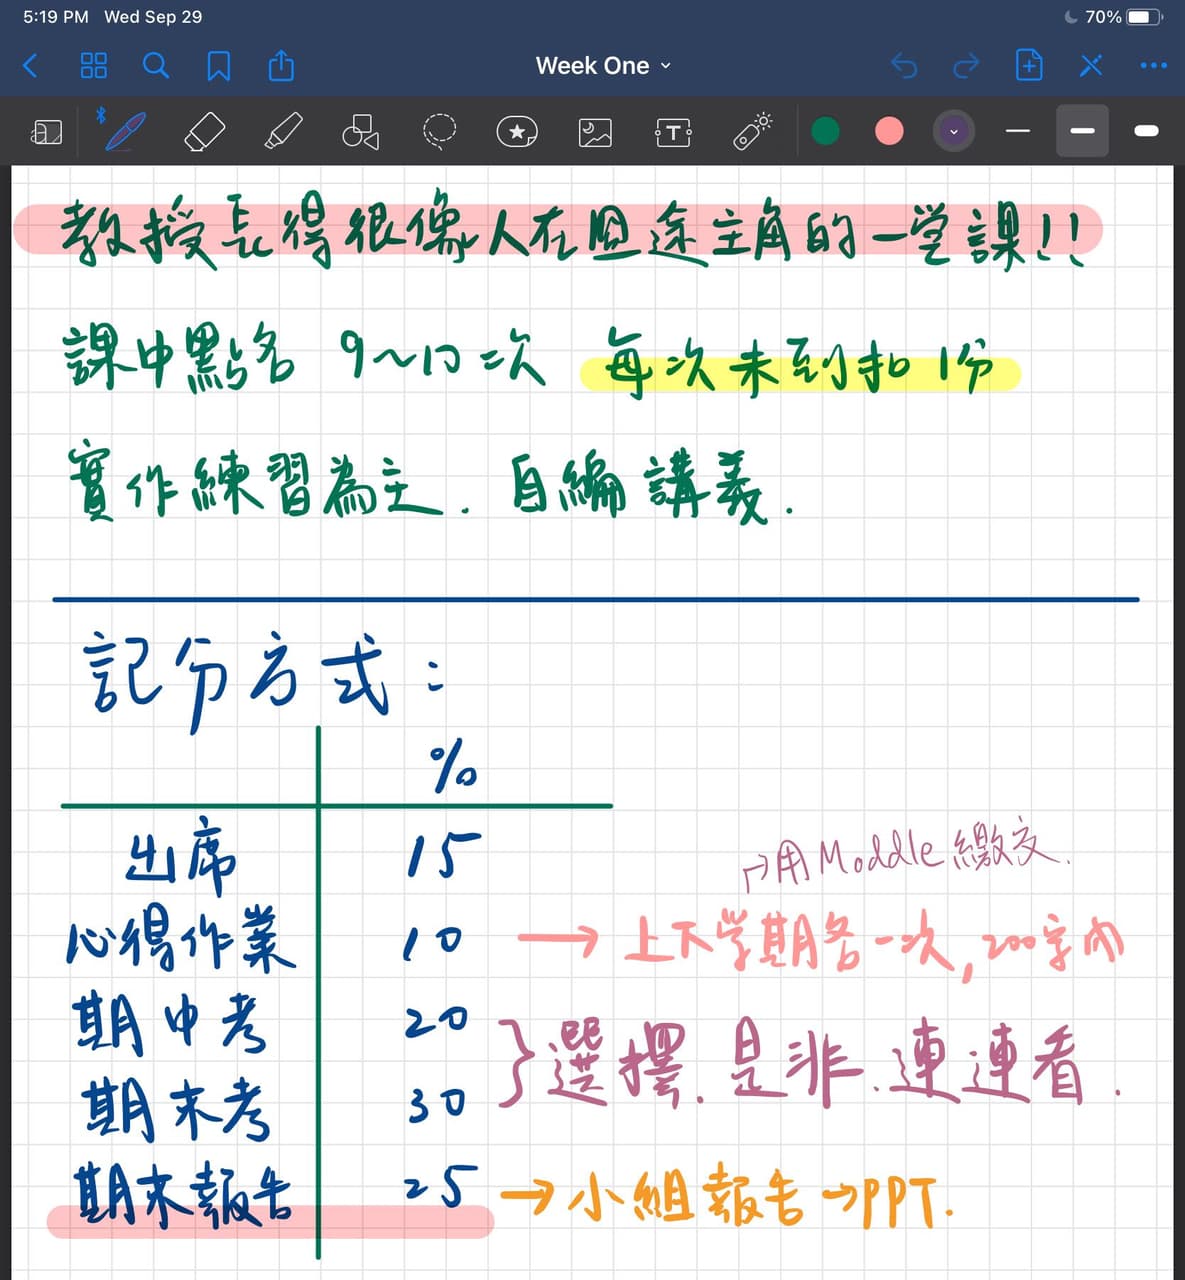 5:19 PM Wed Sep 29 70%
Week One
教授長得很像人在囧途主角的一堂課!!
課中點名 9~10次 每次未到扣1分
實作練習為主. 自編講義.
記分方式:
%
出席 15
→用Moddle繳交.
心得作業 10 → 上下学期各一次, 200字內
期中考 20
} 選擇. 是非. 連連看.
期末考 30
期末報告 25 → 小組報告→PPT.